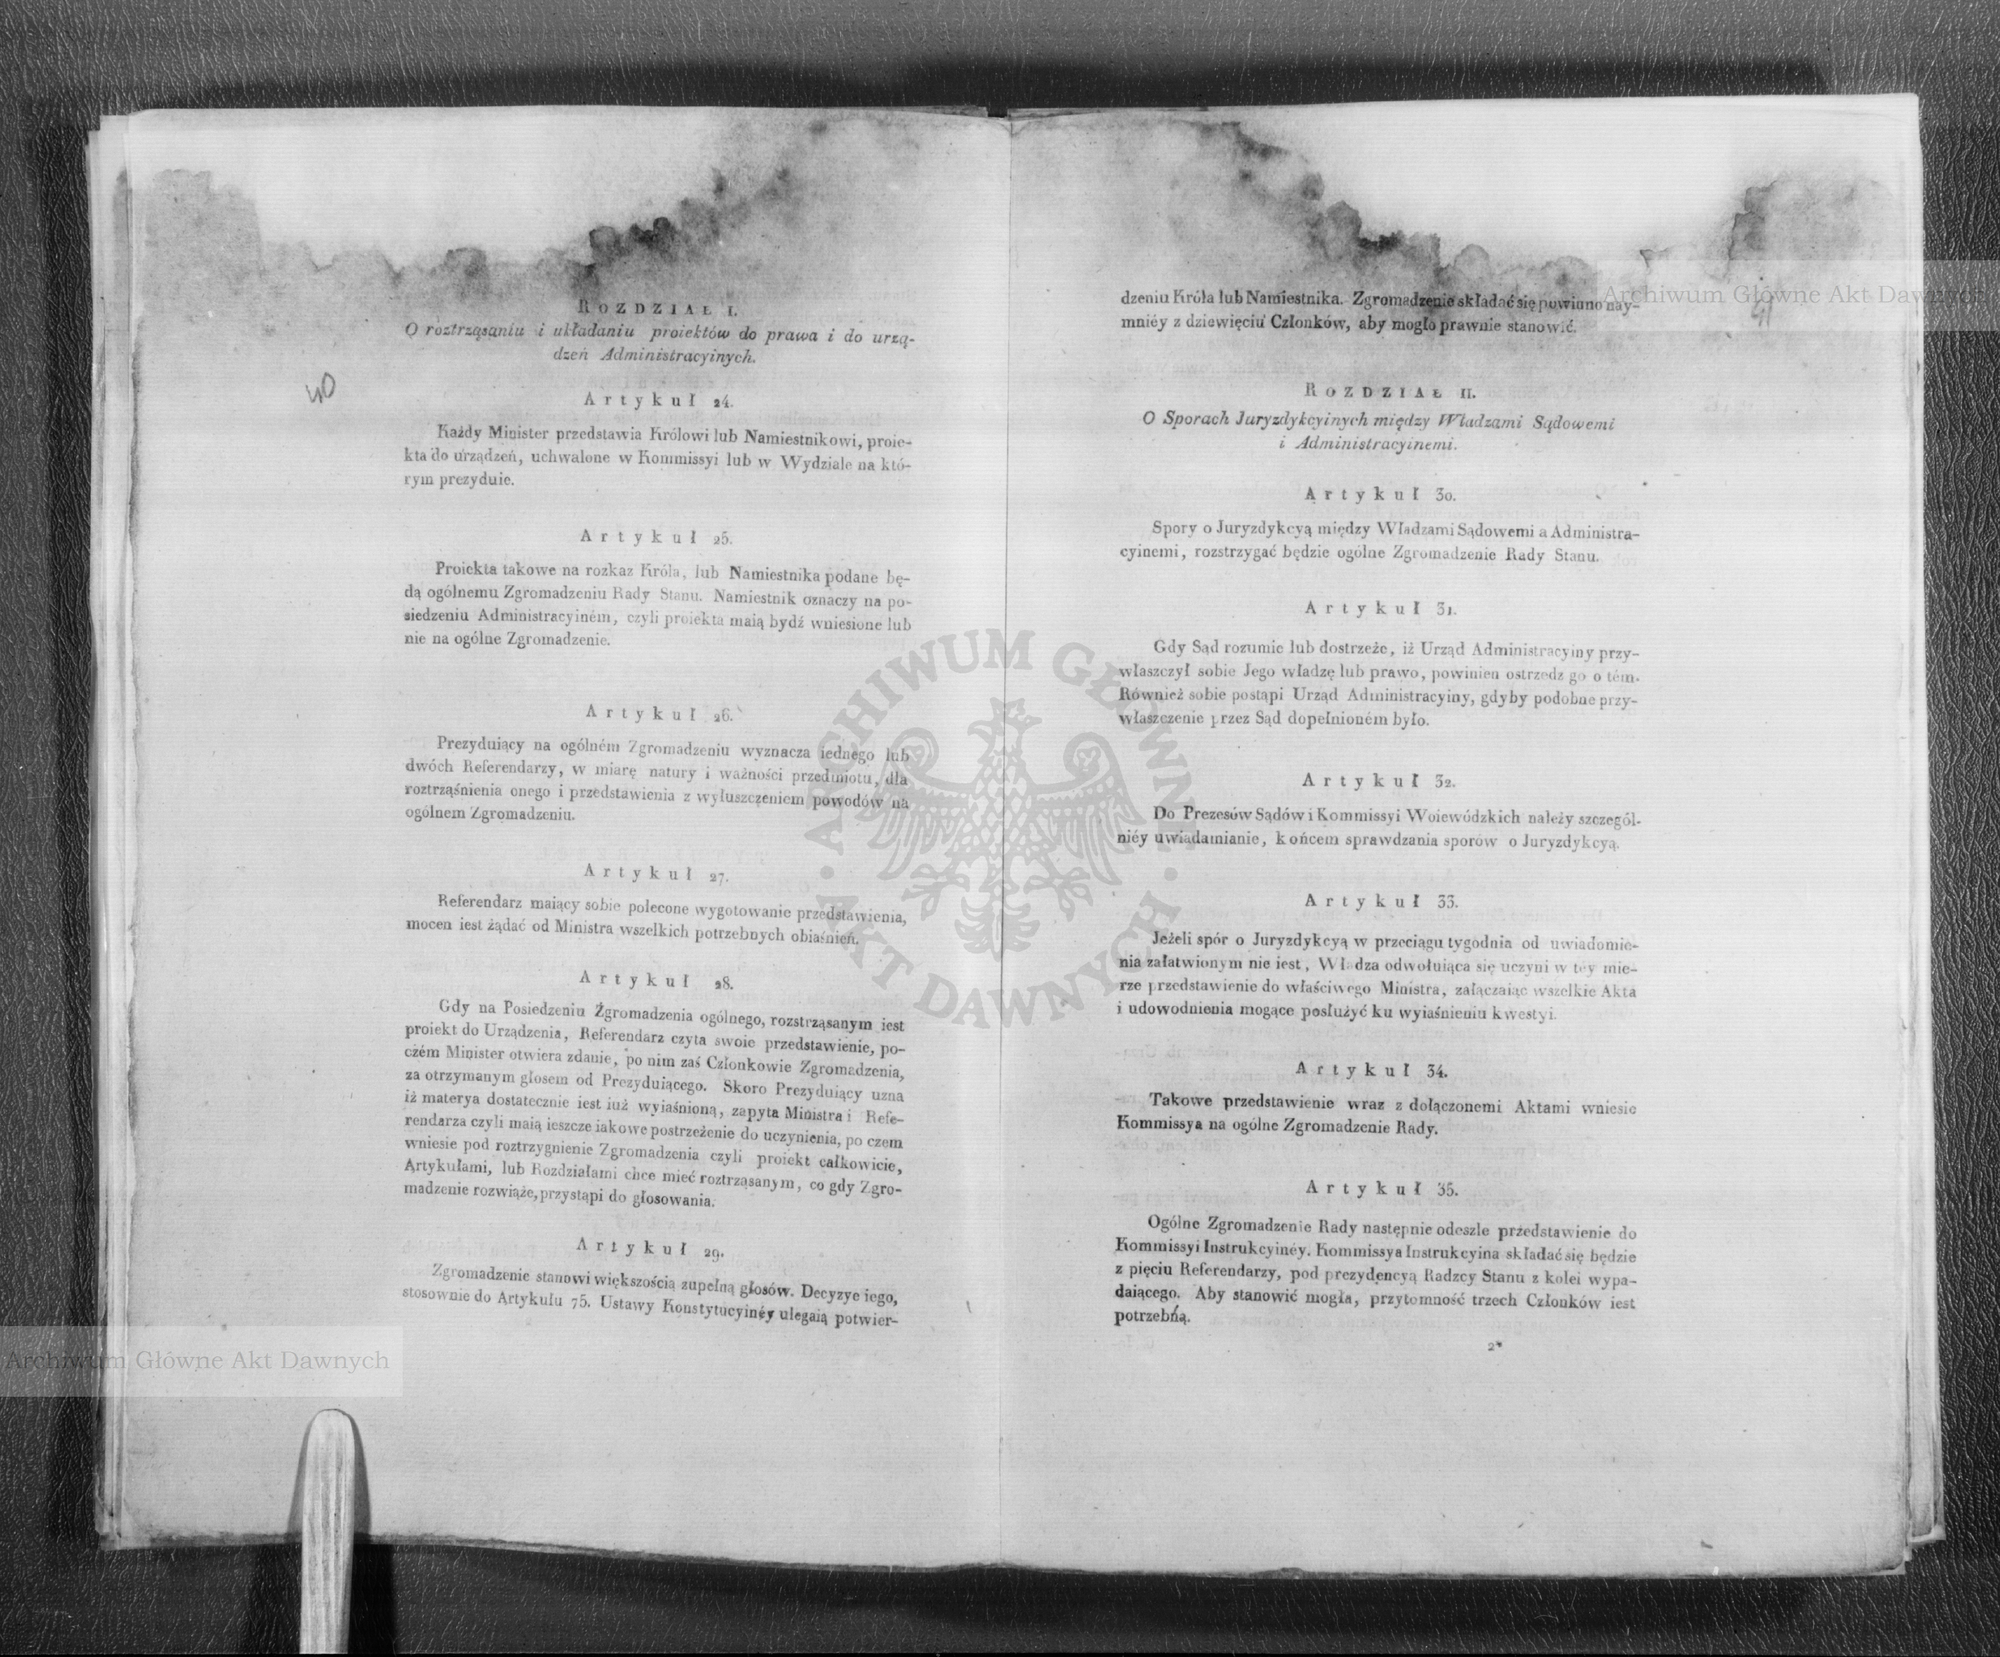 40
ROZDZIAŁ I.
O roztrząsaniu i układaniu proiektów do prawa i do urzą-
dzeń Administracyinych.
Artykuł 24.
Każdy Minister przedstawia Królowi lub Namiestnikowi, proie-
kta do urządzeń, uchwalone w Kommissyi lub w Wydziale na któ-
rym prezyduie.
Artykuł 25.
Proiekta takowe na rozkaz Króla, lub Namiestnika podane bę-
dą ogólnemu Zgromadzeniu Rady Stanu. Namiestnik oznaczy na po-
siedzeniu Administracyiném, czyli proiekta maią bydź wniesione lub
nie na ogólne Zgromadzenie.
Artykuł 26.
Prezyduiący na ogólném Zgromadzeniu wyznacza iednego lub
dwóch Referendarzy, w miarę natury i ważności przedmiotu, dla
roztrząśnienia onego i przedstawienia z wyłuszczeniem powodów na
ogólnem Zgromadzeniu.
Artykuł 27.
Referendarz maiący sobie polecone wygotowanie przedstawienia,
mocen iest żądać od Ministra wszelkich potrzebnych obiaśnień.
Artykuł 28.
Gdy na Posiedzeniu Zgromadzenia ogólnego, rozstrząsanym iest
proiekt do Urządzenia, Referendarz czyta swoie przedstawienie, po-
czém Minister otwiera zdanie, po nim zaś Członkowie Zgromadzenia,
za otrzymanym głosem od Prezyduiącego. Skoro Prezyduiący uzna
iż materya dostatecznie iest iuż wyiaśnioną, zapyta Ministra i Refe-
rendarza czyli maią ieszcze iakowe postrzeżenie do uczynienia, po czem
wniesie pod roztrzygnienie Zgromadzenia czyli proiekt całkowicie,
Artykułami, lub Rozdziałami chce mieć roztrząsanym, co gdy Zgro-
madzenie rozwiąże, przystąpi do głosowania.
Artykuł 29.
Zgromadzenie stanowi większością zupełną głosów. Decyzye iego,
stosownie do Artykułu 75. Ustawy Konstytucyinéy ulegaią potwier-
Archiwum Główne Akt Dawnych
41
dzeniu Króla lub Namiestnika. Zgromadzenie składać się powinno nay-
mniéy z dziewięciu Członków, aby mogło prawnie stanowić.
Archiwum Główne Akt Dawnych
ROZDZIAŁ II.
O Sporach Juryzdykcyinych między Władzami Sądowemi
i Administracyinemi.
Artykuł 30.
Spory o Juryzdykcyą między Władzami Sądowemi a Administra-
cyinemi, rozstrzygać będzie ogólne Zgromadzenie Rady Stanu.
Artykuł 31.
Gdy Sąd rozumie lub dostrzeże, iż Urząd Administracyiny przy-
właszczył sobie Jego władzę lub prawo, powinien ostrzedz go o tém.
Również sobie postąpi Urząd Administracyiny, gdyby podobne przy-
właszczenie przez Sąd dopełnioném było.
Artykuł 32.
Do Prezesów Sądów i Kommissyi Woiewódzkich należy szczegól-
niéy uwiadamianie, końcem sprawdzania sporów o Juryzdykcyą.
Artykuł 33.
Jeżeli spór o Juryzdykcyą w przeciągu tygodnia od uwiadomie-
nia załatwionym nie iest, Władza odwołuiąca się uczyni w téy mie-
rze przedstawienie do właściwego Ministra, załączaiąc wszelkie Akta
i udowodnienia mogące posłużyć ku wyiaśnieniu kwestyi.
Artykuł 34.
Takowe przedstawienie wraz z dołączonemi Aktami wniesie
Kommissya na ogólne Zgromadzenie Rady.
Artykuł 35.
Ogólne Zgromadzenie Rady następnie odeszle przedstawienie do
Kommissyi Instrukcyinéy. Kommissya Instrukcyina składać się będzie
z pięciu Referendarzy, pod prezydencyą Radzcy Stanu z kolei wypa-
daiącego. Aby stanowić mogła, przytomność trzech Członków iest
potrzebną.
2*
ARCHIWUM GŁÓWNE AKT DAWNYCH